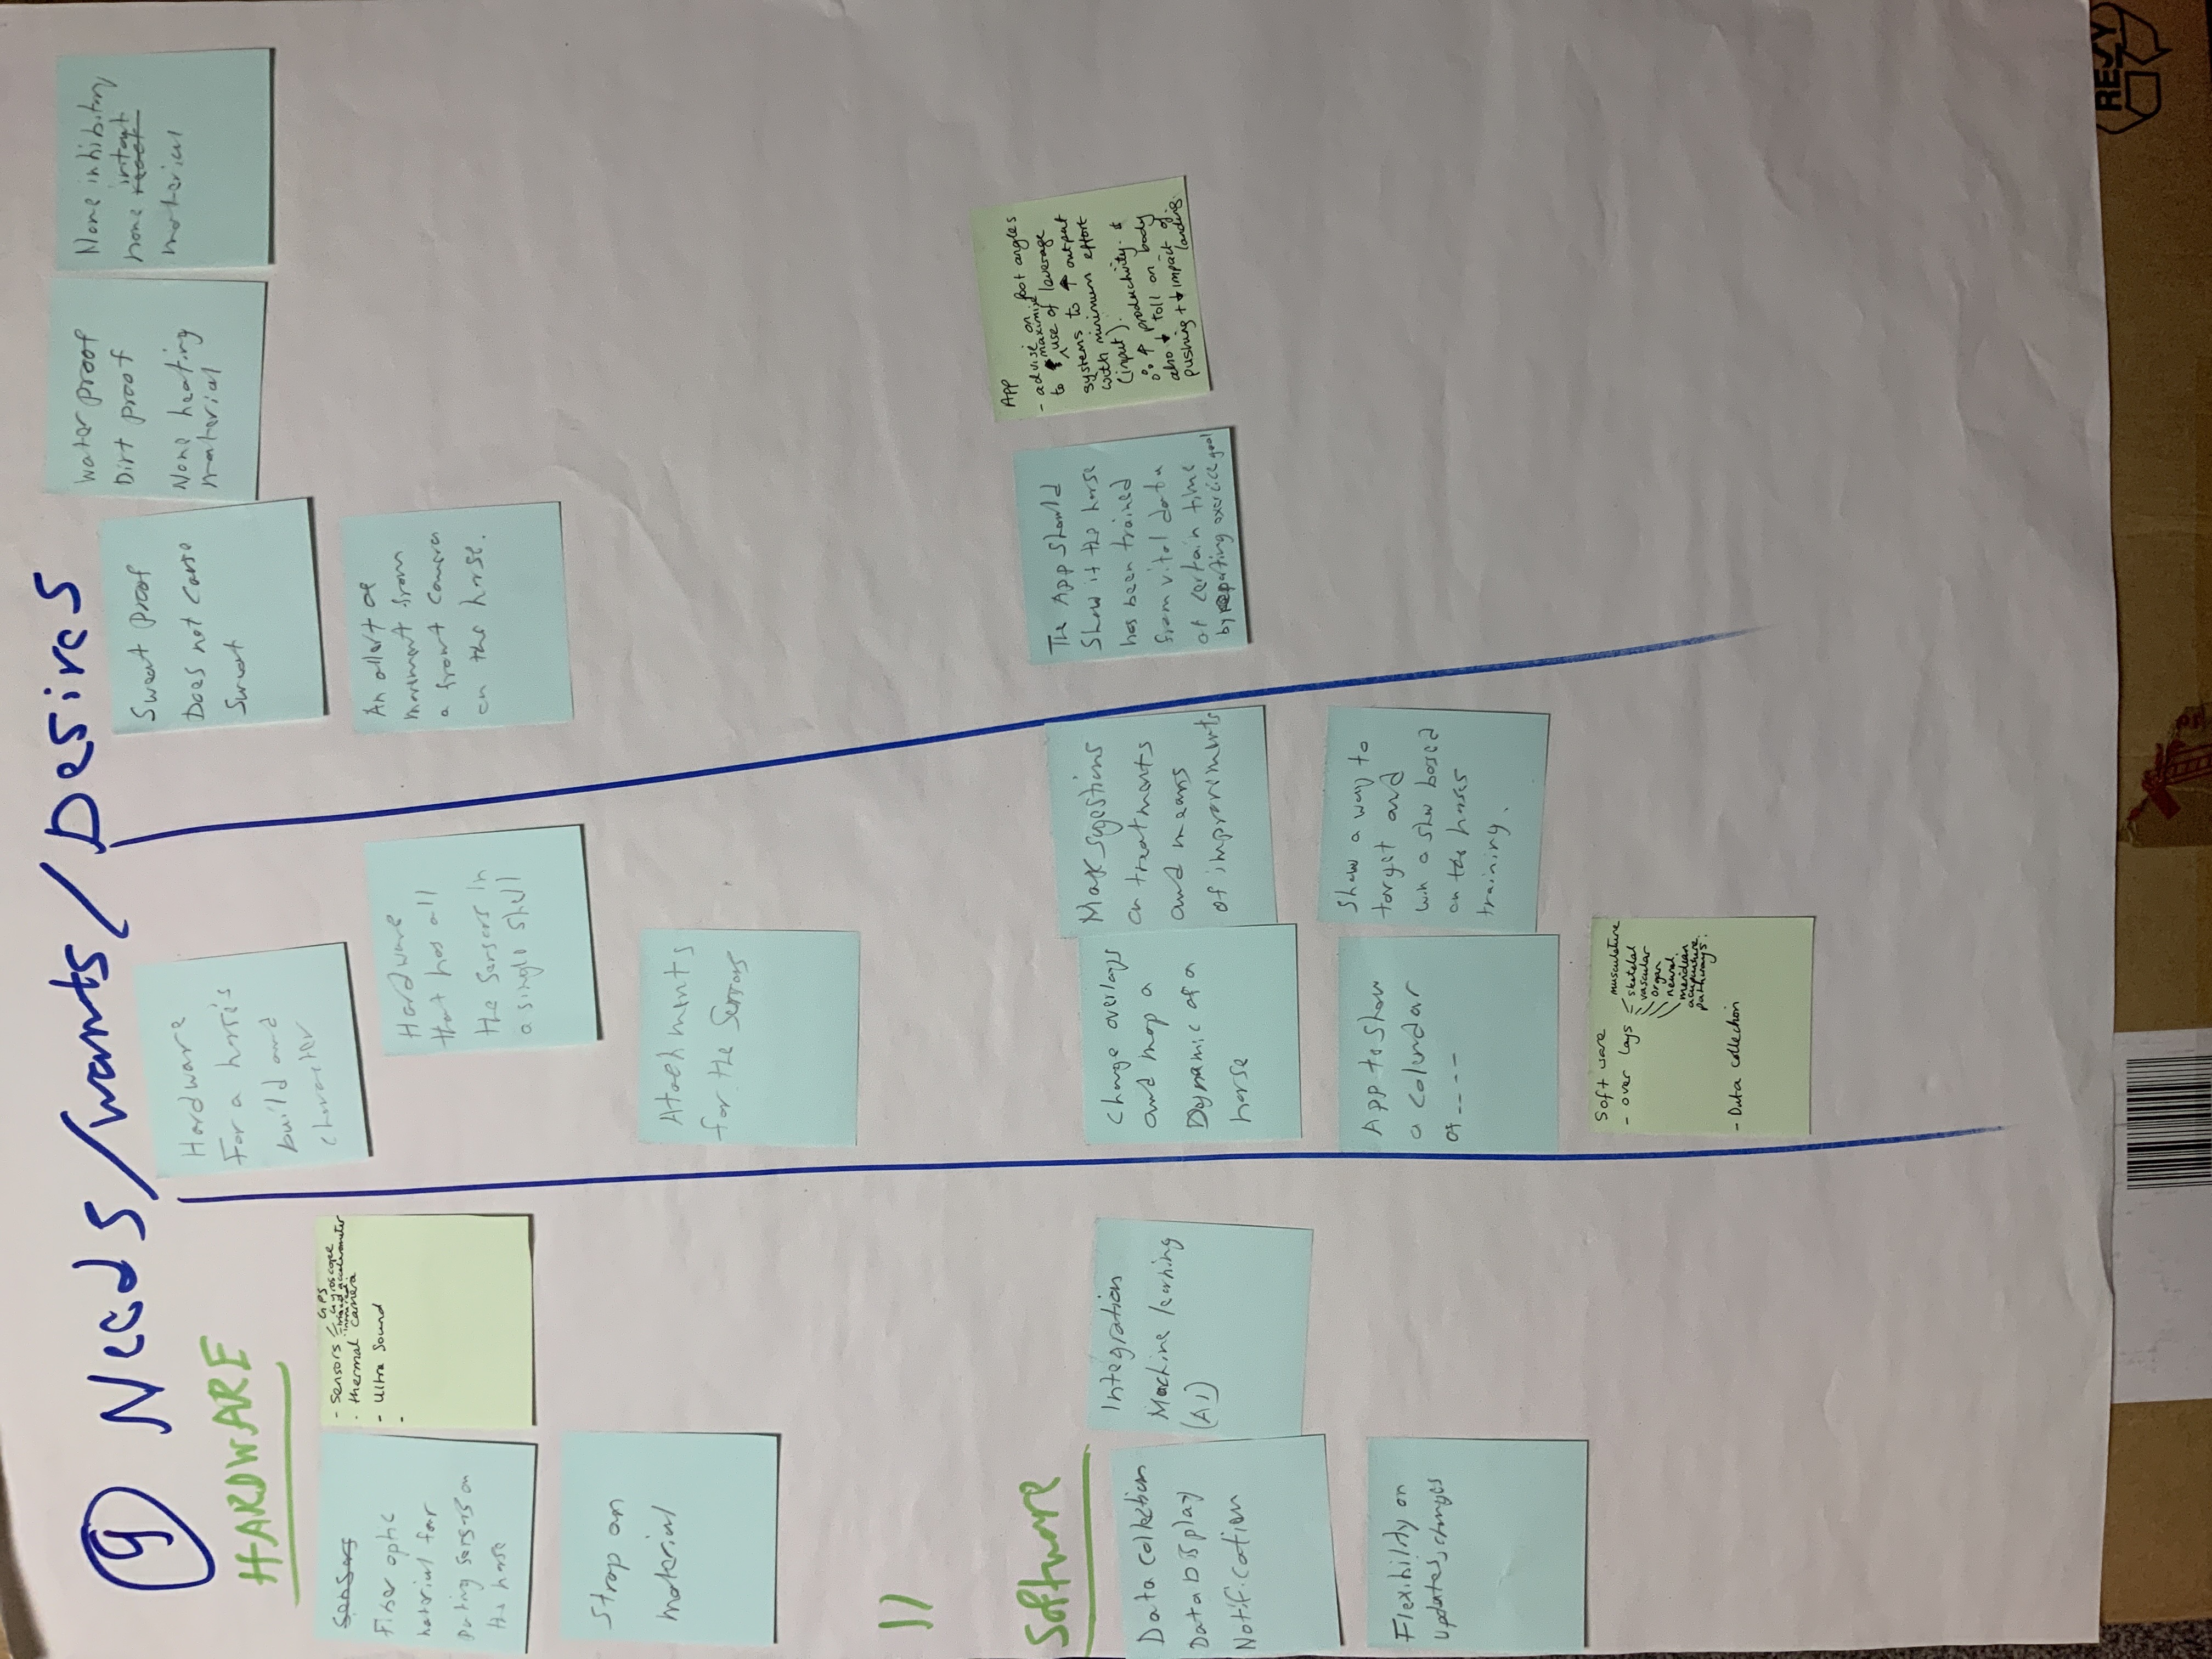 9 Needs/wants/Desires
HARDWARE
Sensors
Fiber optic
material for
puting sensors on
the horse
- sensors
GPS
Gyroscope
accelerometer
infrared
- thermal camera
- Ultra Sound
-
Strap on
material
Hardware
For a horse's
build and
character
Hardware
that has all
the sensors in
a single shell
Atachments
for the Sensors
Sweat Proof
Does not cause
Sweat
Water proof
Dirt proof
None heating
material
None inhibitory
none
material
An allert of
movment from
a front camera
on the horse.
Software
Data collection
Data Display
Notification
Integration
Machine learning
(AI)
Flexibility on
updates, changes
Change overlays
and map a
Dynamic of a
horse
Mak sugestions
on treatments
and means
of improvements
App to show
a calendar
of ----
Show a way to
target and
win a show based
on the horses
training.
Software
- over lays
musculature
skeletal
vascular
organ
neural
meridian
acupuncture
pathways.
- Data collection
The App Should
Show if the horse
has been trained
from vital data
at certain time
by reporting exercice goal
App
- advise on foot angles
to ↑ maximize use of leverage
systems to ↑ output
with minimum effort
(input).
∴ ↑ productivity. &
also ↓ toll on body
pushing + ↓ impact of
landing.
RESY